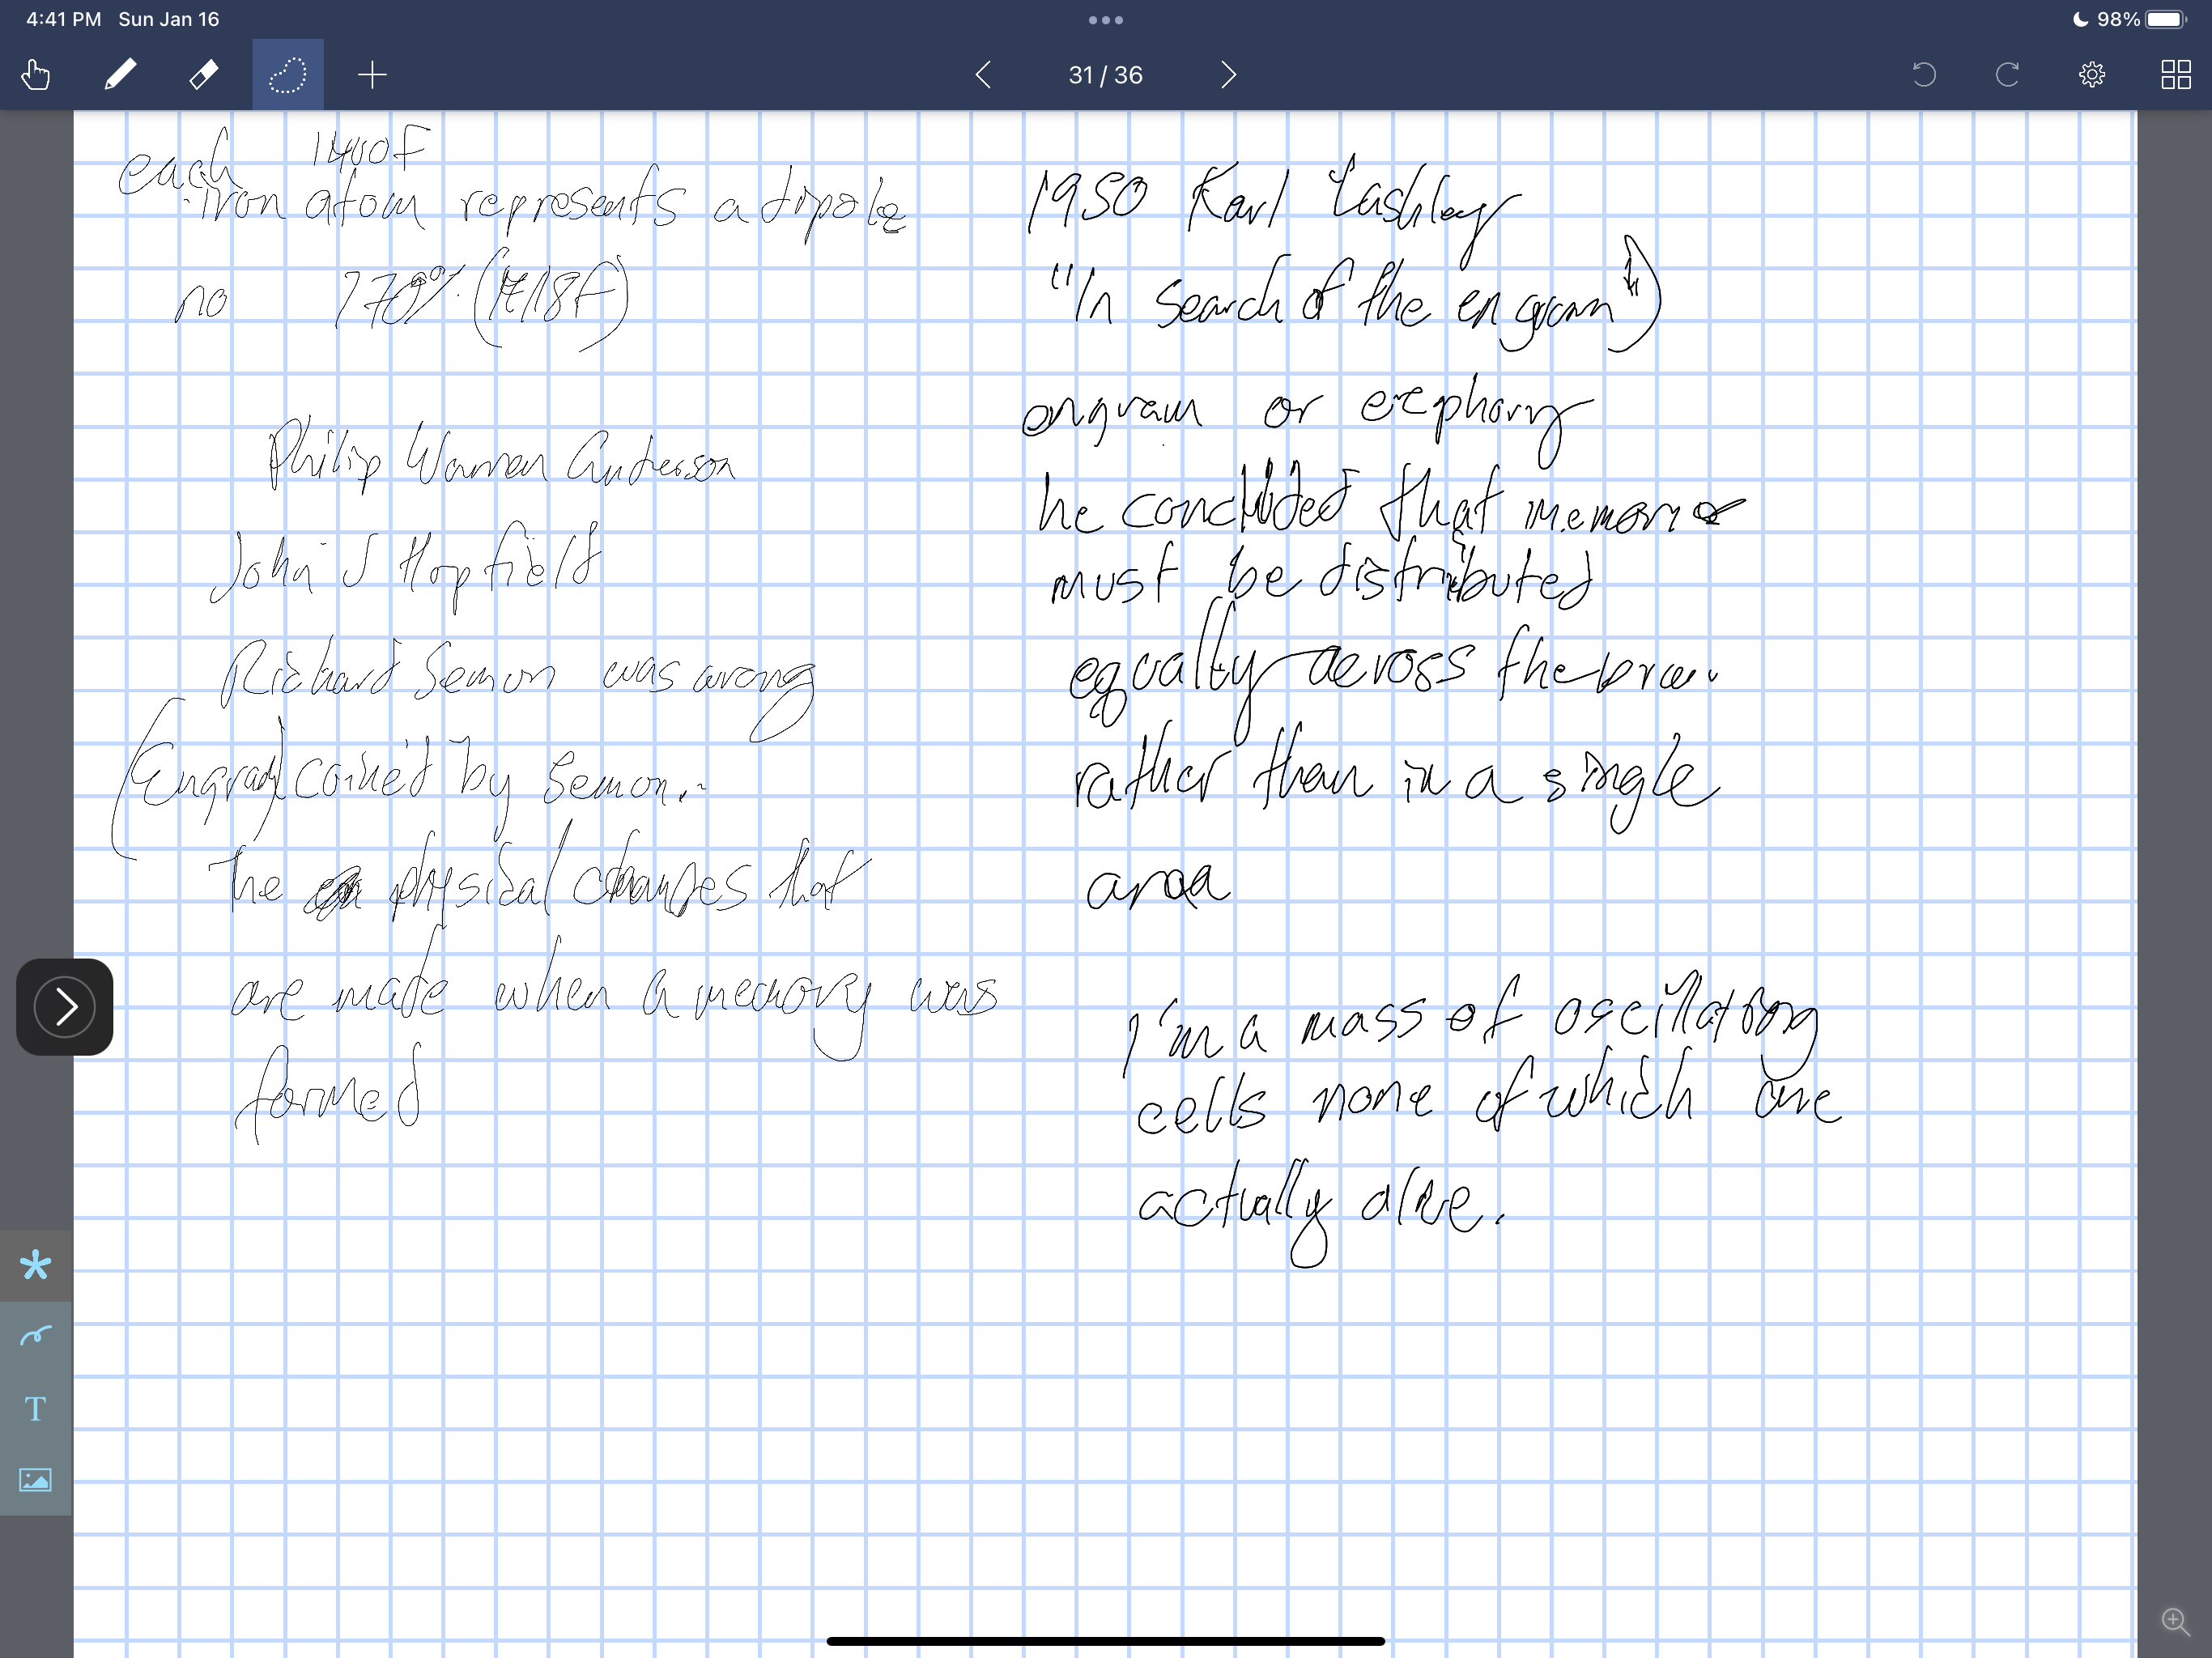 4:41 PM Sun Jan 16
98%
31 / 36
1400F
each
iron atom represents a dipole
no 770% (1418F)
Philip Warren Anderson
John J Hopfield
Richard Semon was wrong
(Engram) coined by Semon..
The physical changes that
are made when a memory was
formed
1950 Karl Lashley
"In search of the engram")
engram or
he concluded that memor
must be distributed
equally across the
rather than in a single
area
I'm a mass of oscillating
cells none of which are
actually alive.
T